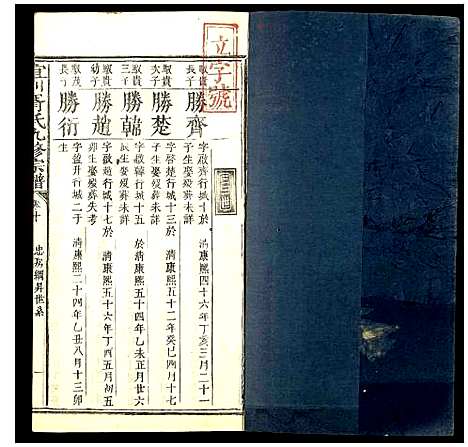 文字號
二十三世
敬貴長子
勝齊
字啟齊行城十於清康熙四十六年丁亥三月二十一
子生娶缓葬未詳
敬貴次子
勝楚
字啓楚行城十三於清康熙五十二年癸巳四月十七
子生娶缓葬未詳
敬貴三子
勝韓
字啟韓行城十五於清康熙五十四年乙未正月廿六
辰生娶缓葬未詳
敬貴幼子
勝趙
字啟趙行城十七於清康熙五十六年丁酉五月初五
卯生娶缓葬失考
敬茂長子
勝衍
字盈升行城二于清康熙二十四年乙丑八月十三卯
生
氏九修宗譜
卷十
世系
一